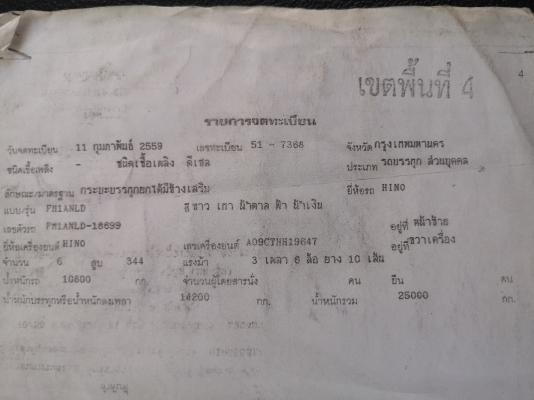 เขตพื้นที่ 4
4
รายการจดทะเบียน
วันจดทะเบียน 11 กุมภาพันธ์ 2559 เลขทะเบียน 51 - 7368 จังหวัด กรุงเทพมหานคร
ชนิดเชื้อเพลิง - ชนิดเชื้อเพลิง ดีเซล ประเภท รถบรรทุก ส่วนบุคคล
ลักษณะ/มาตรฐาน กระบะบรรทุกยกได้มีข้างเสริม ยี่ห้อรถ HINO
แบบ/รุ่น FM1ANLD สี ขาว เทา น้ำตาล ฟ้า น้ำเงิน
เลขตัวรถ FM1ANLD-18699 อยู่ที่ หน้าซ้าย
ยี่ห้อเครื่องยนต์ HINO เลขเครื่องยนต์ A09CTHH19647 อยู่ที่ ขวาเครื่อง
จำนวน 6 สูบ 344 แรงม้า 3 เพลา 6 ล้อ ยาง 10 เส้น
น้ำหนักรถ 10800 กก. จำนวนผู้โดยสารนั่ง คน ยืน คน
น้ำหนักบรรทุกหรือน้ำหนักลงเพลา 14200 กก. น้ำหนักรวม 25000 กก.